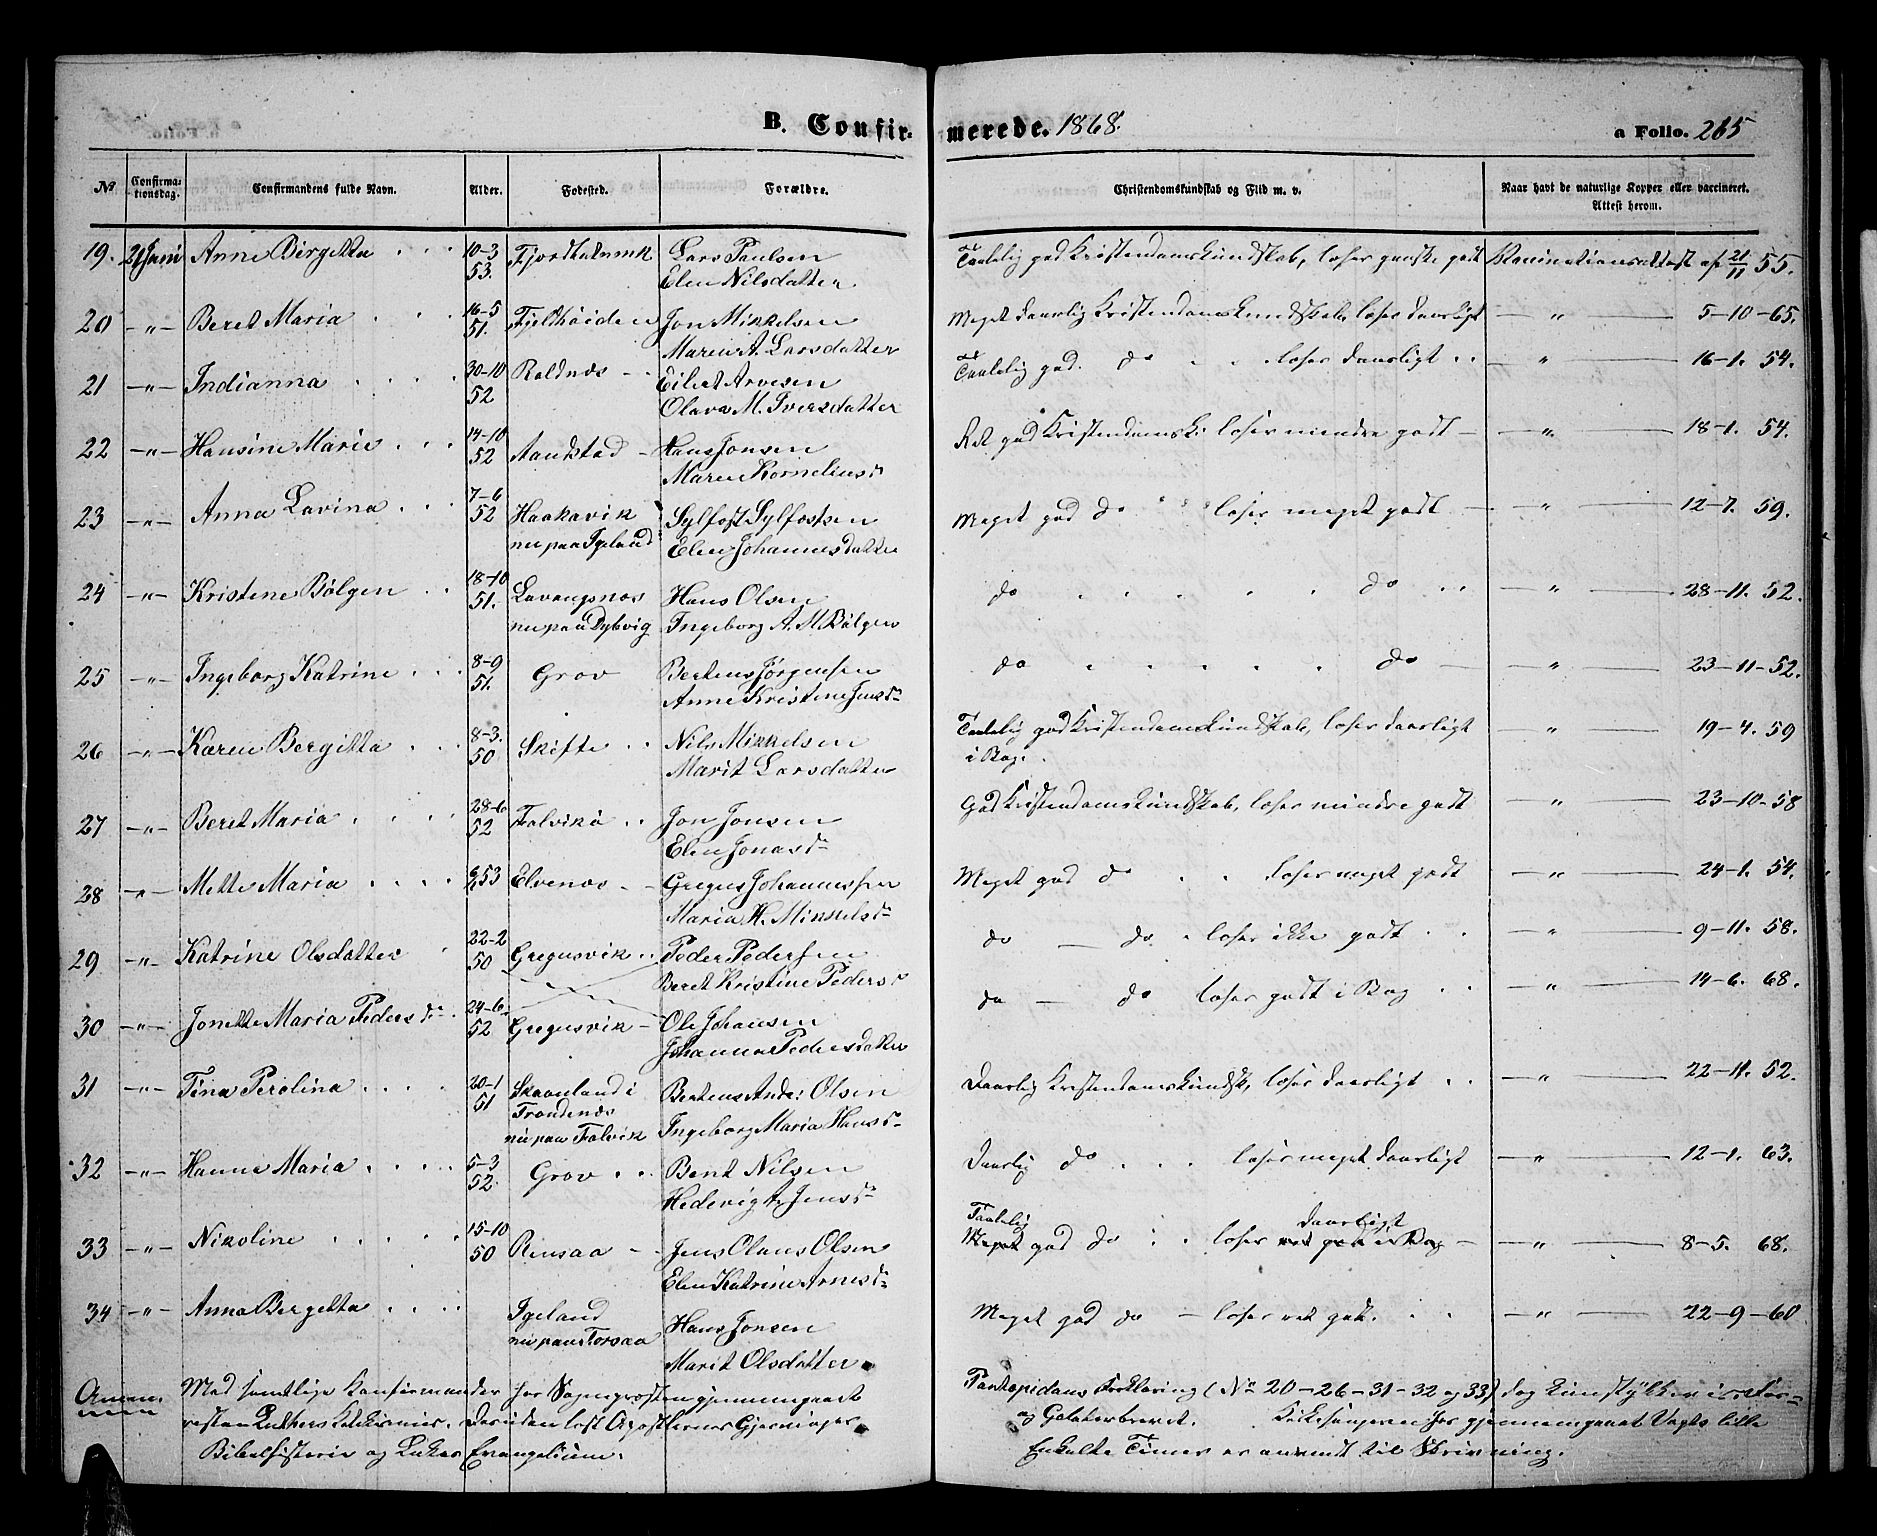 B. Confirmerede. 1868.
a Folio. 265
No
Confirmationsdag.
Confirmandens fulde Navn.
Alder.
Fodested.
Forældre.
Christendomskundskab og Flid m. v.
Naar havt de naturlige Kopper eller vaccineret. Attest herom.
19. 21 Juni Anne Birgitta 10-3 53. Lars Paulsen Taalelig god Kristendomskundskab, læser ganske godt Vaccinationsattest af 21/11 55.
Elen Nilsdatter
20 -"- Beret Maria 16-5 51. Fjeldhøiden Jon Mikkelsen Meget daarlig Kristendomskundskab, læser daarligt -"- 5-10-65.
Maren A. Larsdatter
21 -"- Indianna 30-10 52 Roldnæs Eilert Arvesen Taalelig god do læser daarligt " 16-1. 54.
Olava M. Iversdatter
22 -"- Hansine Marie 14-10 52 Aandstad Hans Jonsen Ret god Kristendomsk: læser mindre godt -"- 18-1. 54.
Maren Kornelius dr
23 -"- Anna Lavina 7-6 52 Haakavik Sylfest Sylfestsen Meget god do læser meget godt -"- 12-7. 59.
nu paa Igeland Elen Johannesdatter
24 -"- Kristine Bølgen 18-10 51. Lavangsnæs Hans Olsen do do -"- 28-11. 52.
nu paa Dybvig Ingeborg A. M. Bølgen
25 -"- Ingeborg Katrine 8-9 51. Grov Bertens Jørgensen do do -"- 23-11-52.
Anne Kristine Jens dr
26 -"- Karen Bergitta 8-3. 50 Skifte Nils Mikkelsen Taalelig god Kristendomskundskab, læser daarligt -"- 19-4. 59
Marit Larsdatter i Bog.
27 -"- Beret Maria 28-6. 52 Falvika Jon Jonsen God Kristendomskundskab, læser mindre godt -"- 23-10-58
Elen Jonas dr
28 -"- Mette Maria 53 Elvenæs Gregus Johannessen Meget god do læser meget godt -"- 24-1. 54.
Maria H. Mikkels dr
29 -"- Katrine Olsdatter 22-2 50 Gregusvik Peder Pedersen do - do læser ikke godt -"- 9-11. 58.
Beret Kristine Peders dr
30 -"- Jonette Maria Peders dr 24-6. 52 Gregusvik Ole Johansen do - do læser godt i Bog -"- 14-6. 68.
Johanna Pedersdatter
31 -"- Tina Perolina 20-1 51 Skaanland i Bertens Ander Olsen Daarlig Kristendomskundsk, læser daarligt -"- 22-11. 52.
Trondenæs
nu paa Falvik Ingeborg Maria Hans dr
32 -"- Hanna Maria 5-3 52. Grov Bent Nilsen Daarlig do læser meget daarligt -"- 12-1. 63.
Hedevig A. Jens dr
33 -"- Nikoline 15-10 50 Rensaa Jens Olaus Olsen Taalelig Meget god do læser daarligt ret godt i Bog -"- 8-5. 68.
Elen Katrine Arnes dr
34 -"- Anna Bergitta Igeland Hans Jonsen Meget god do - læser ret godt. -"- 22-9-60
nu paa Forsaa Marit Olsdatter
Med samtlige Konfirmander har Sognepræsten gjennemgaaet Pontopidans Forklaring (No 20-26-31-32 og 33) dog
Luthers Katekismus. Desuden læst Apostlernes Gjerninger og Galaterbrevet. Kirkesangeren har gjennemgaaet Vogts lille
Bibelhistorie og Lukas Evangelium. Enkelte Timer er anvendt til Skrivning.